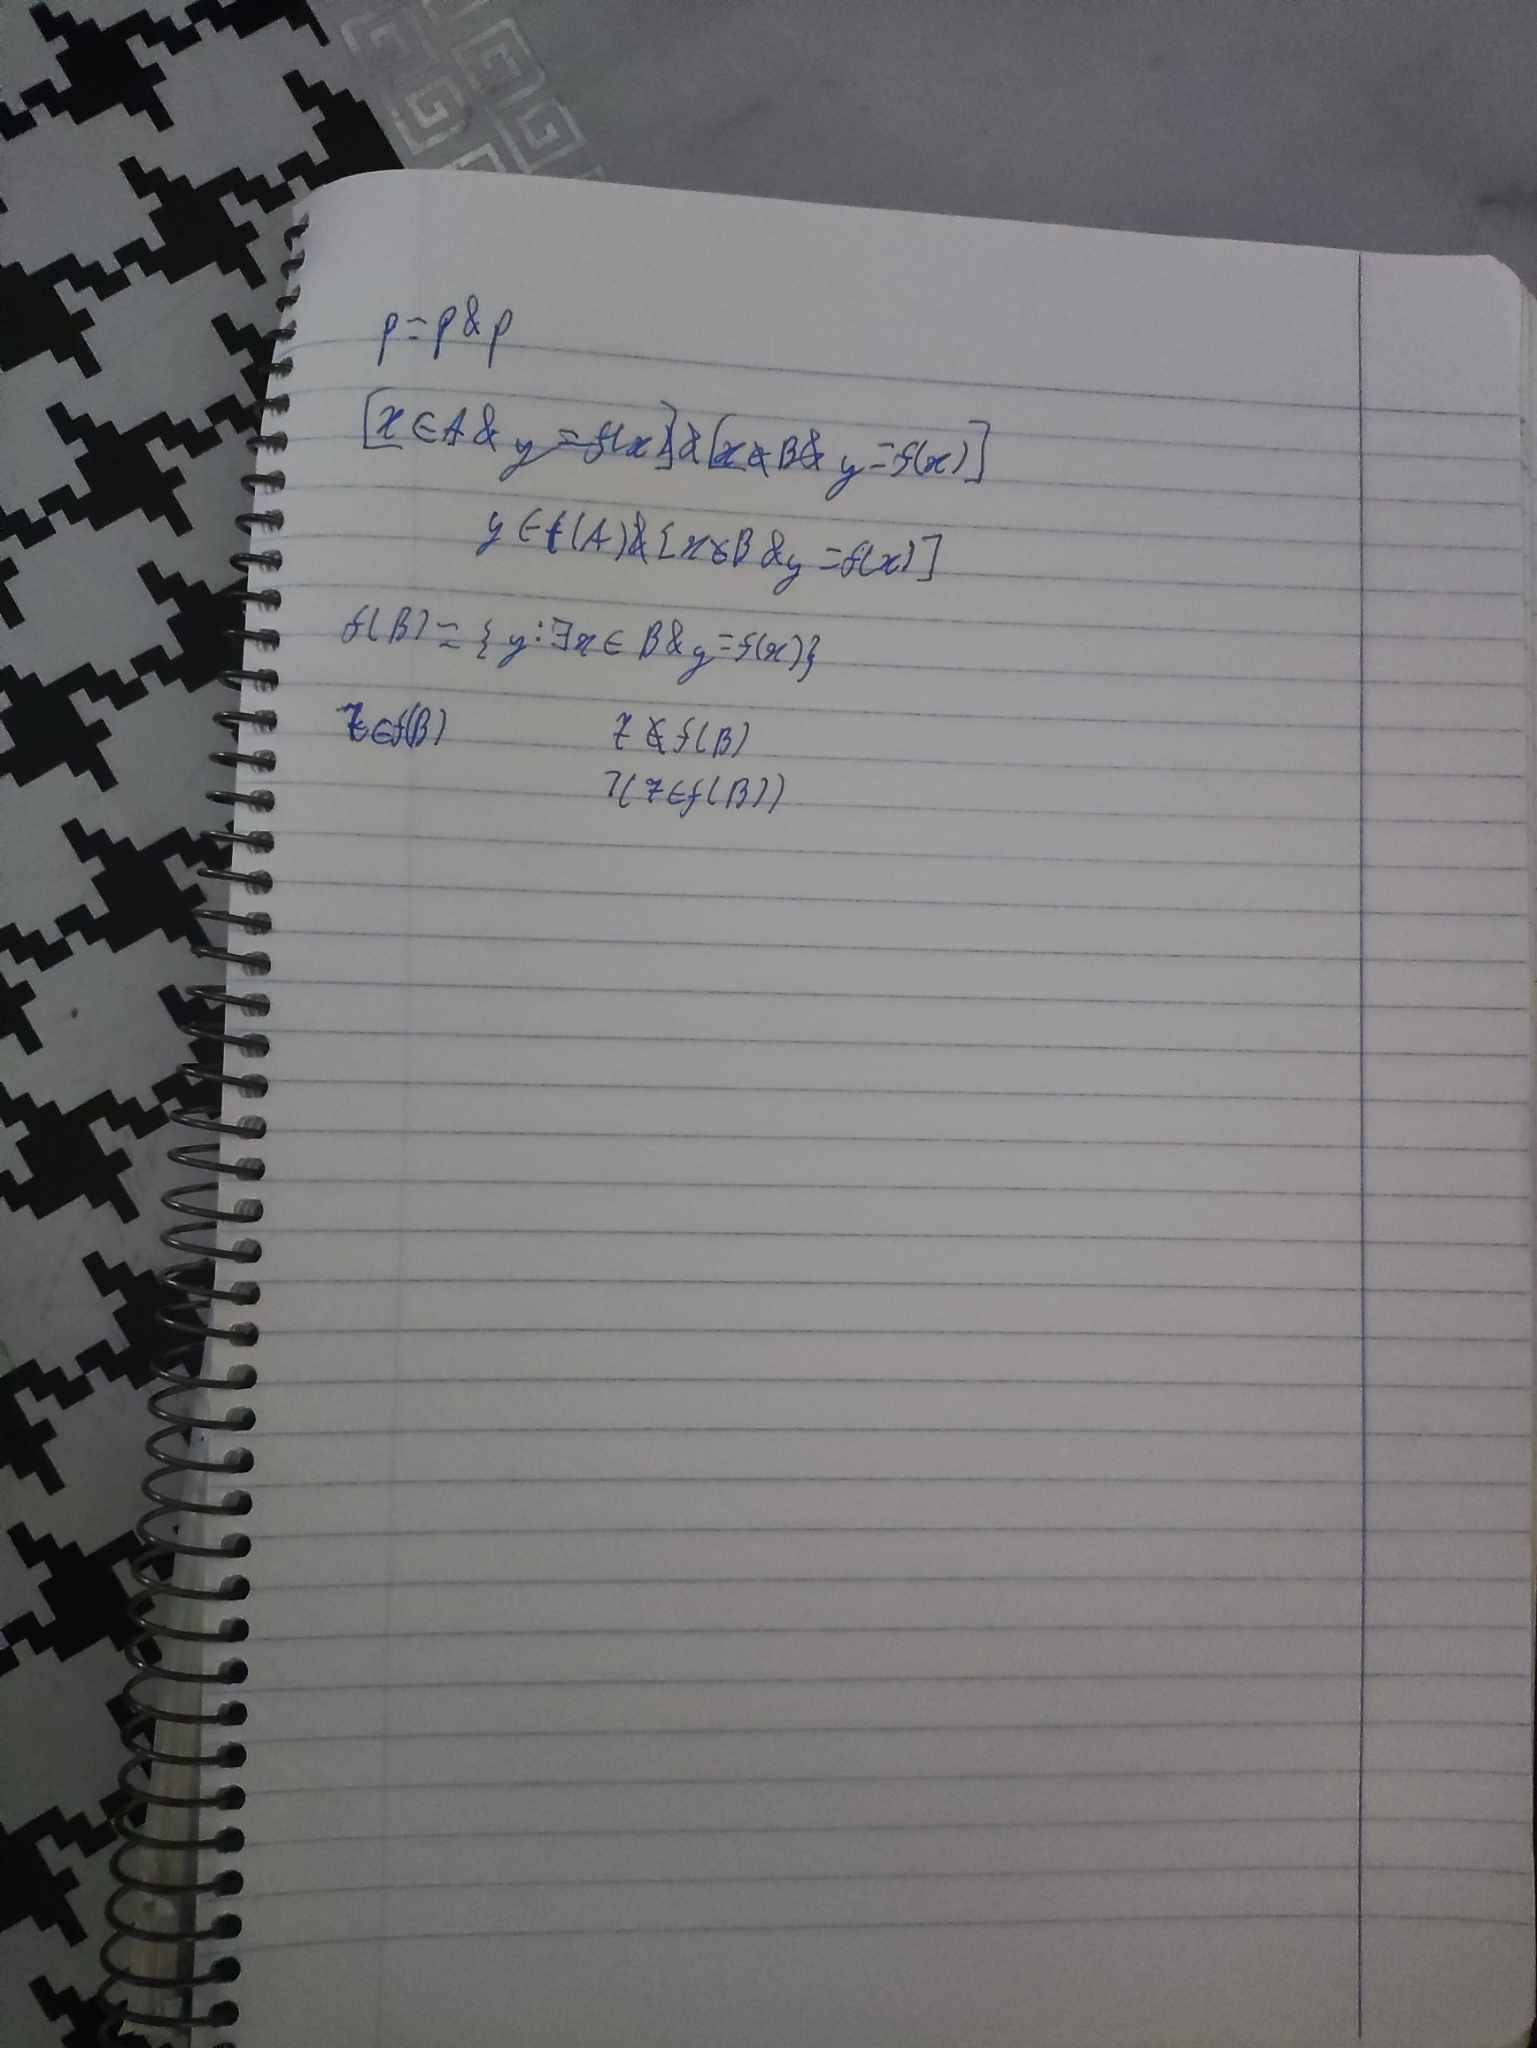 p = p & p
[x ∈ A & y = f(x)] & [x ∉ B & y = f(x)]
y ∈ f(A) & [x ∉ B & y = f(x)]
f(B) = { y : ∃x ∈ B & y = f(x) }
z ∈ f(B) z ∉ f(B)
¬(z ∈ f(B))